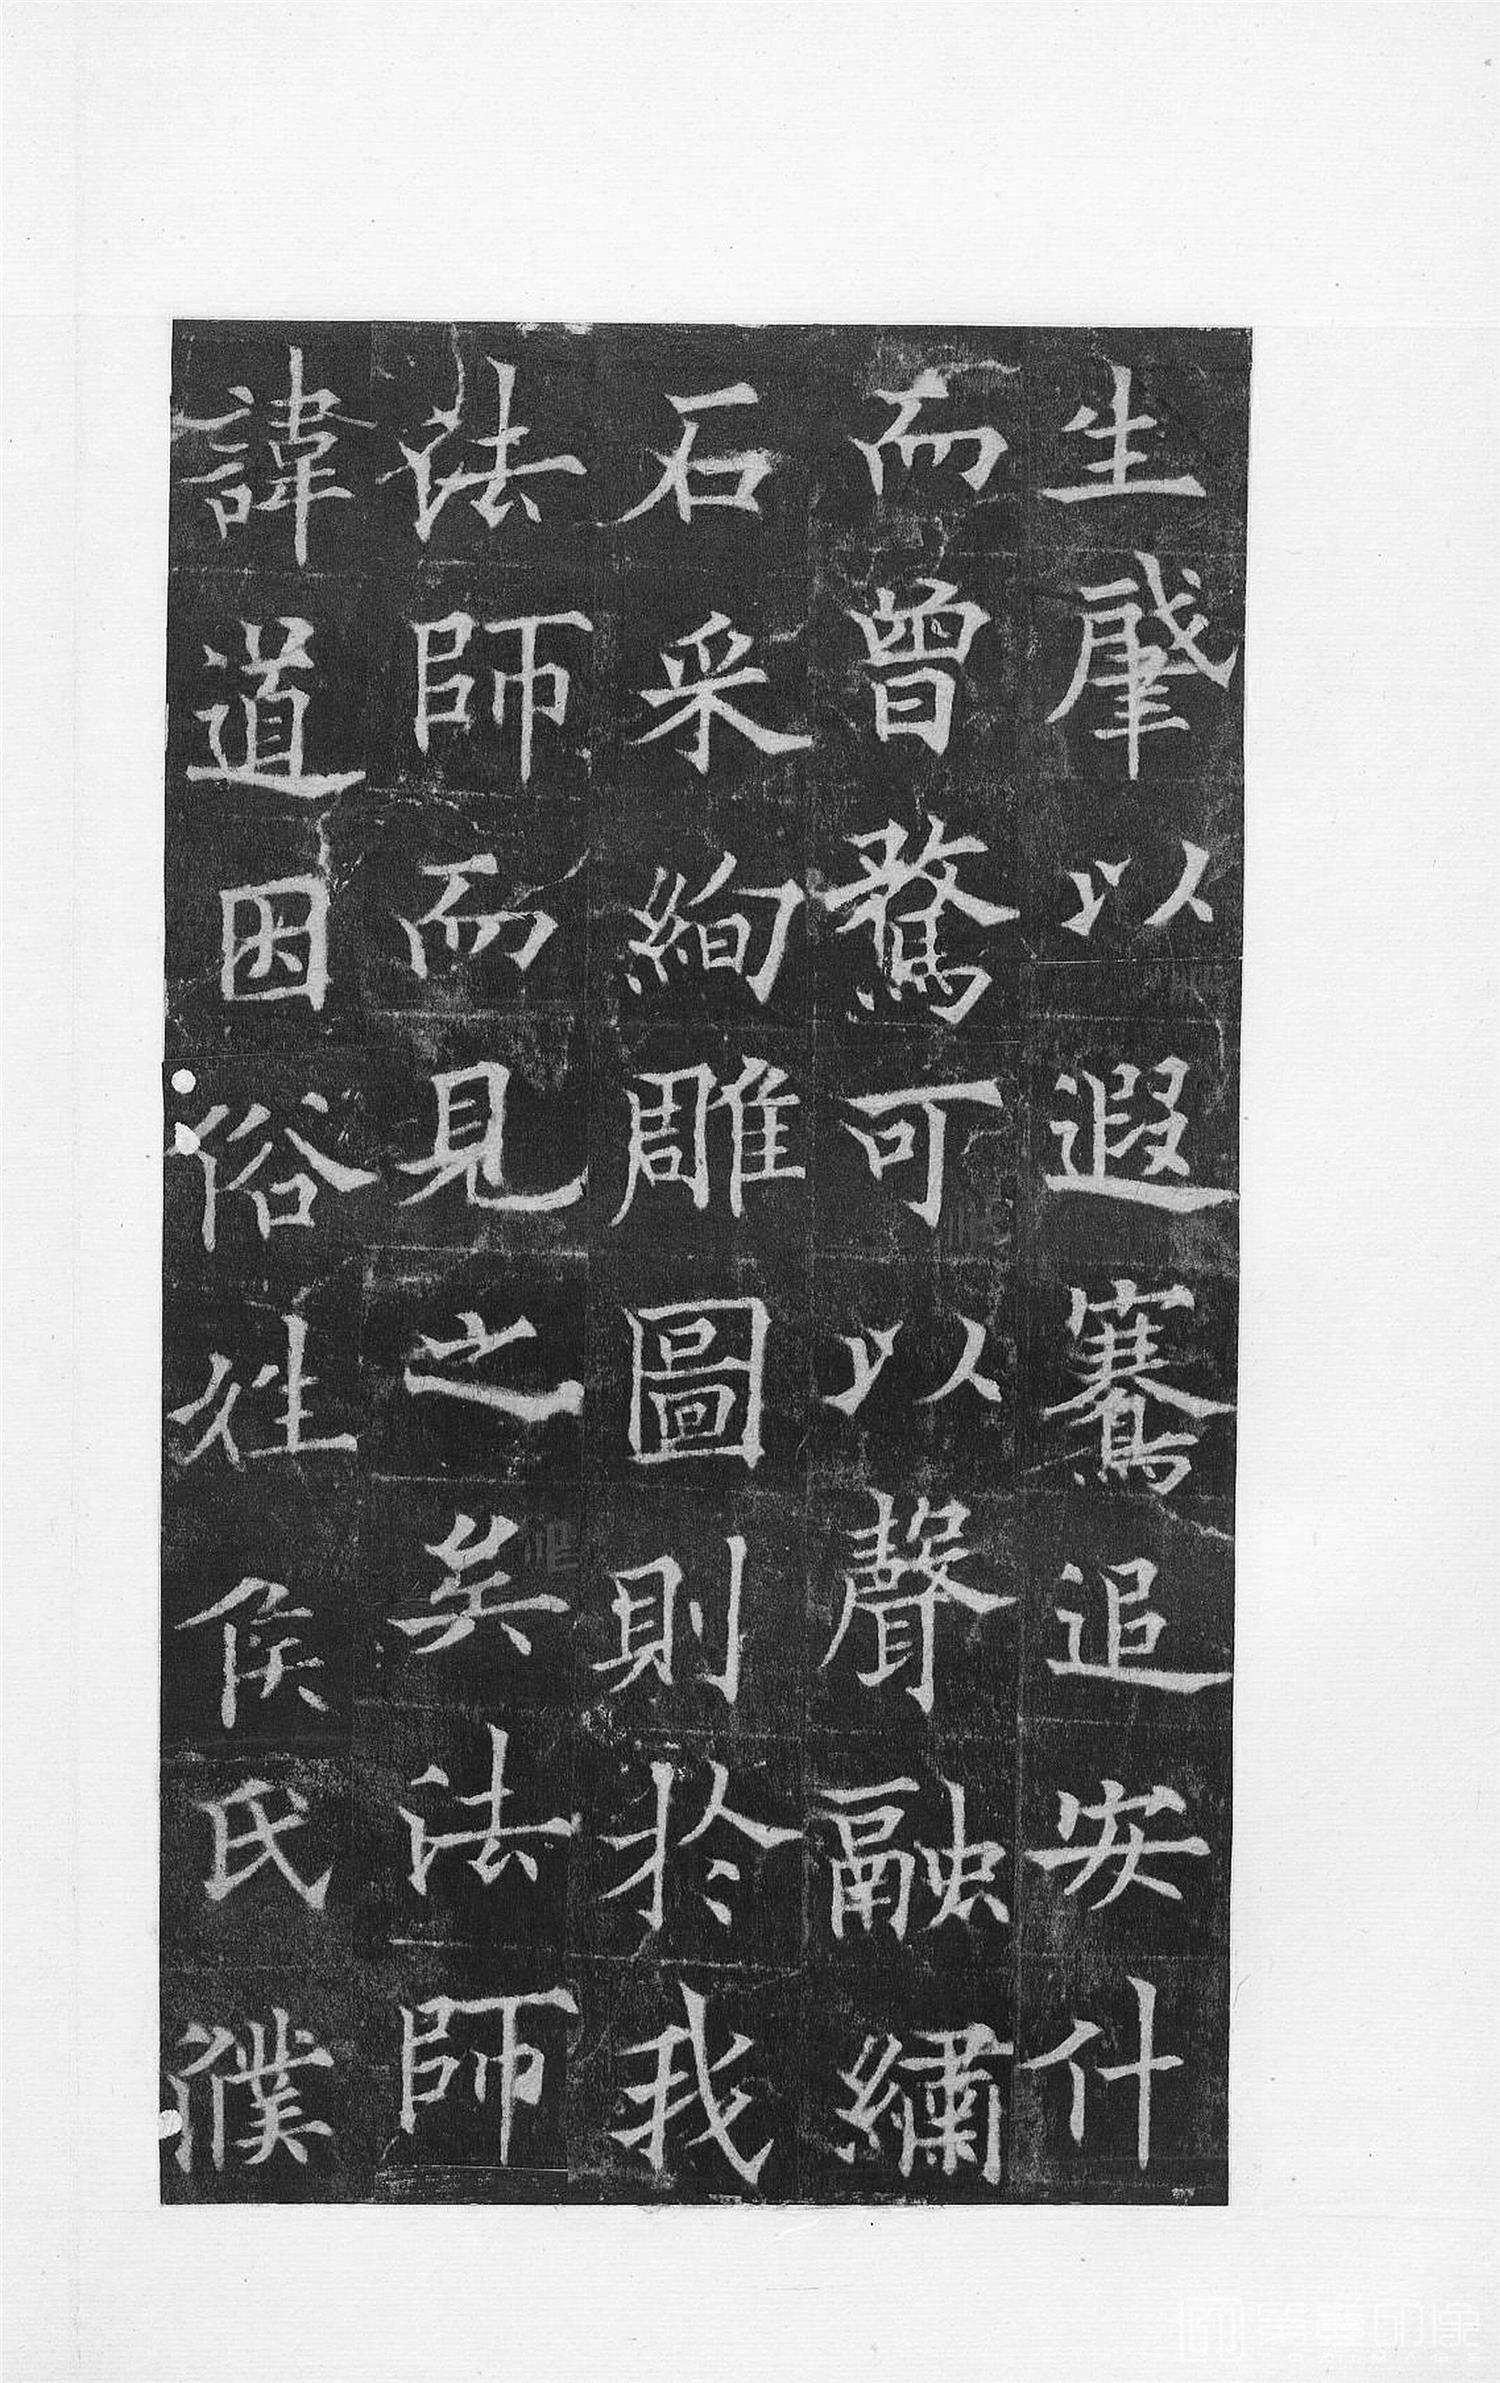 生肇以遐騫追安什
而曾騖可以聲融繡
石采絢雕圖則於我
法師而見之矣法師
諱道因俗姓侯氏濮